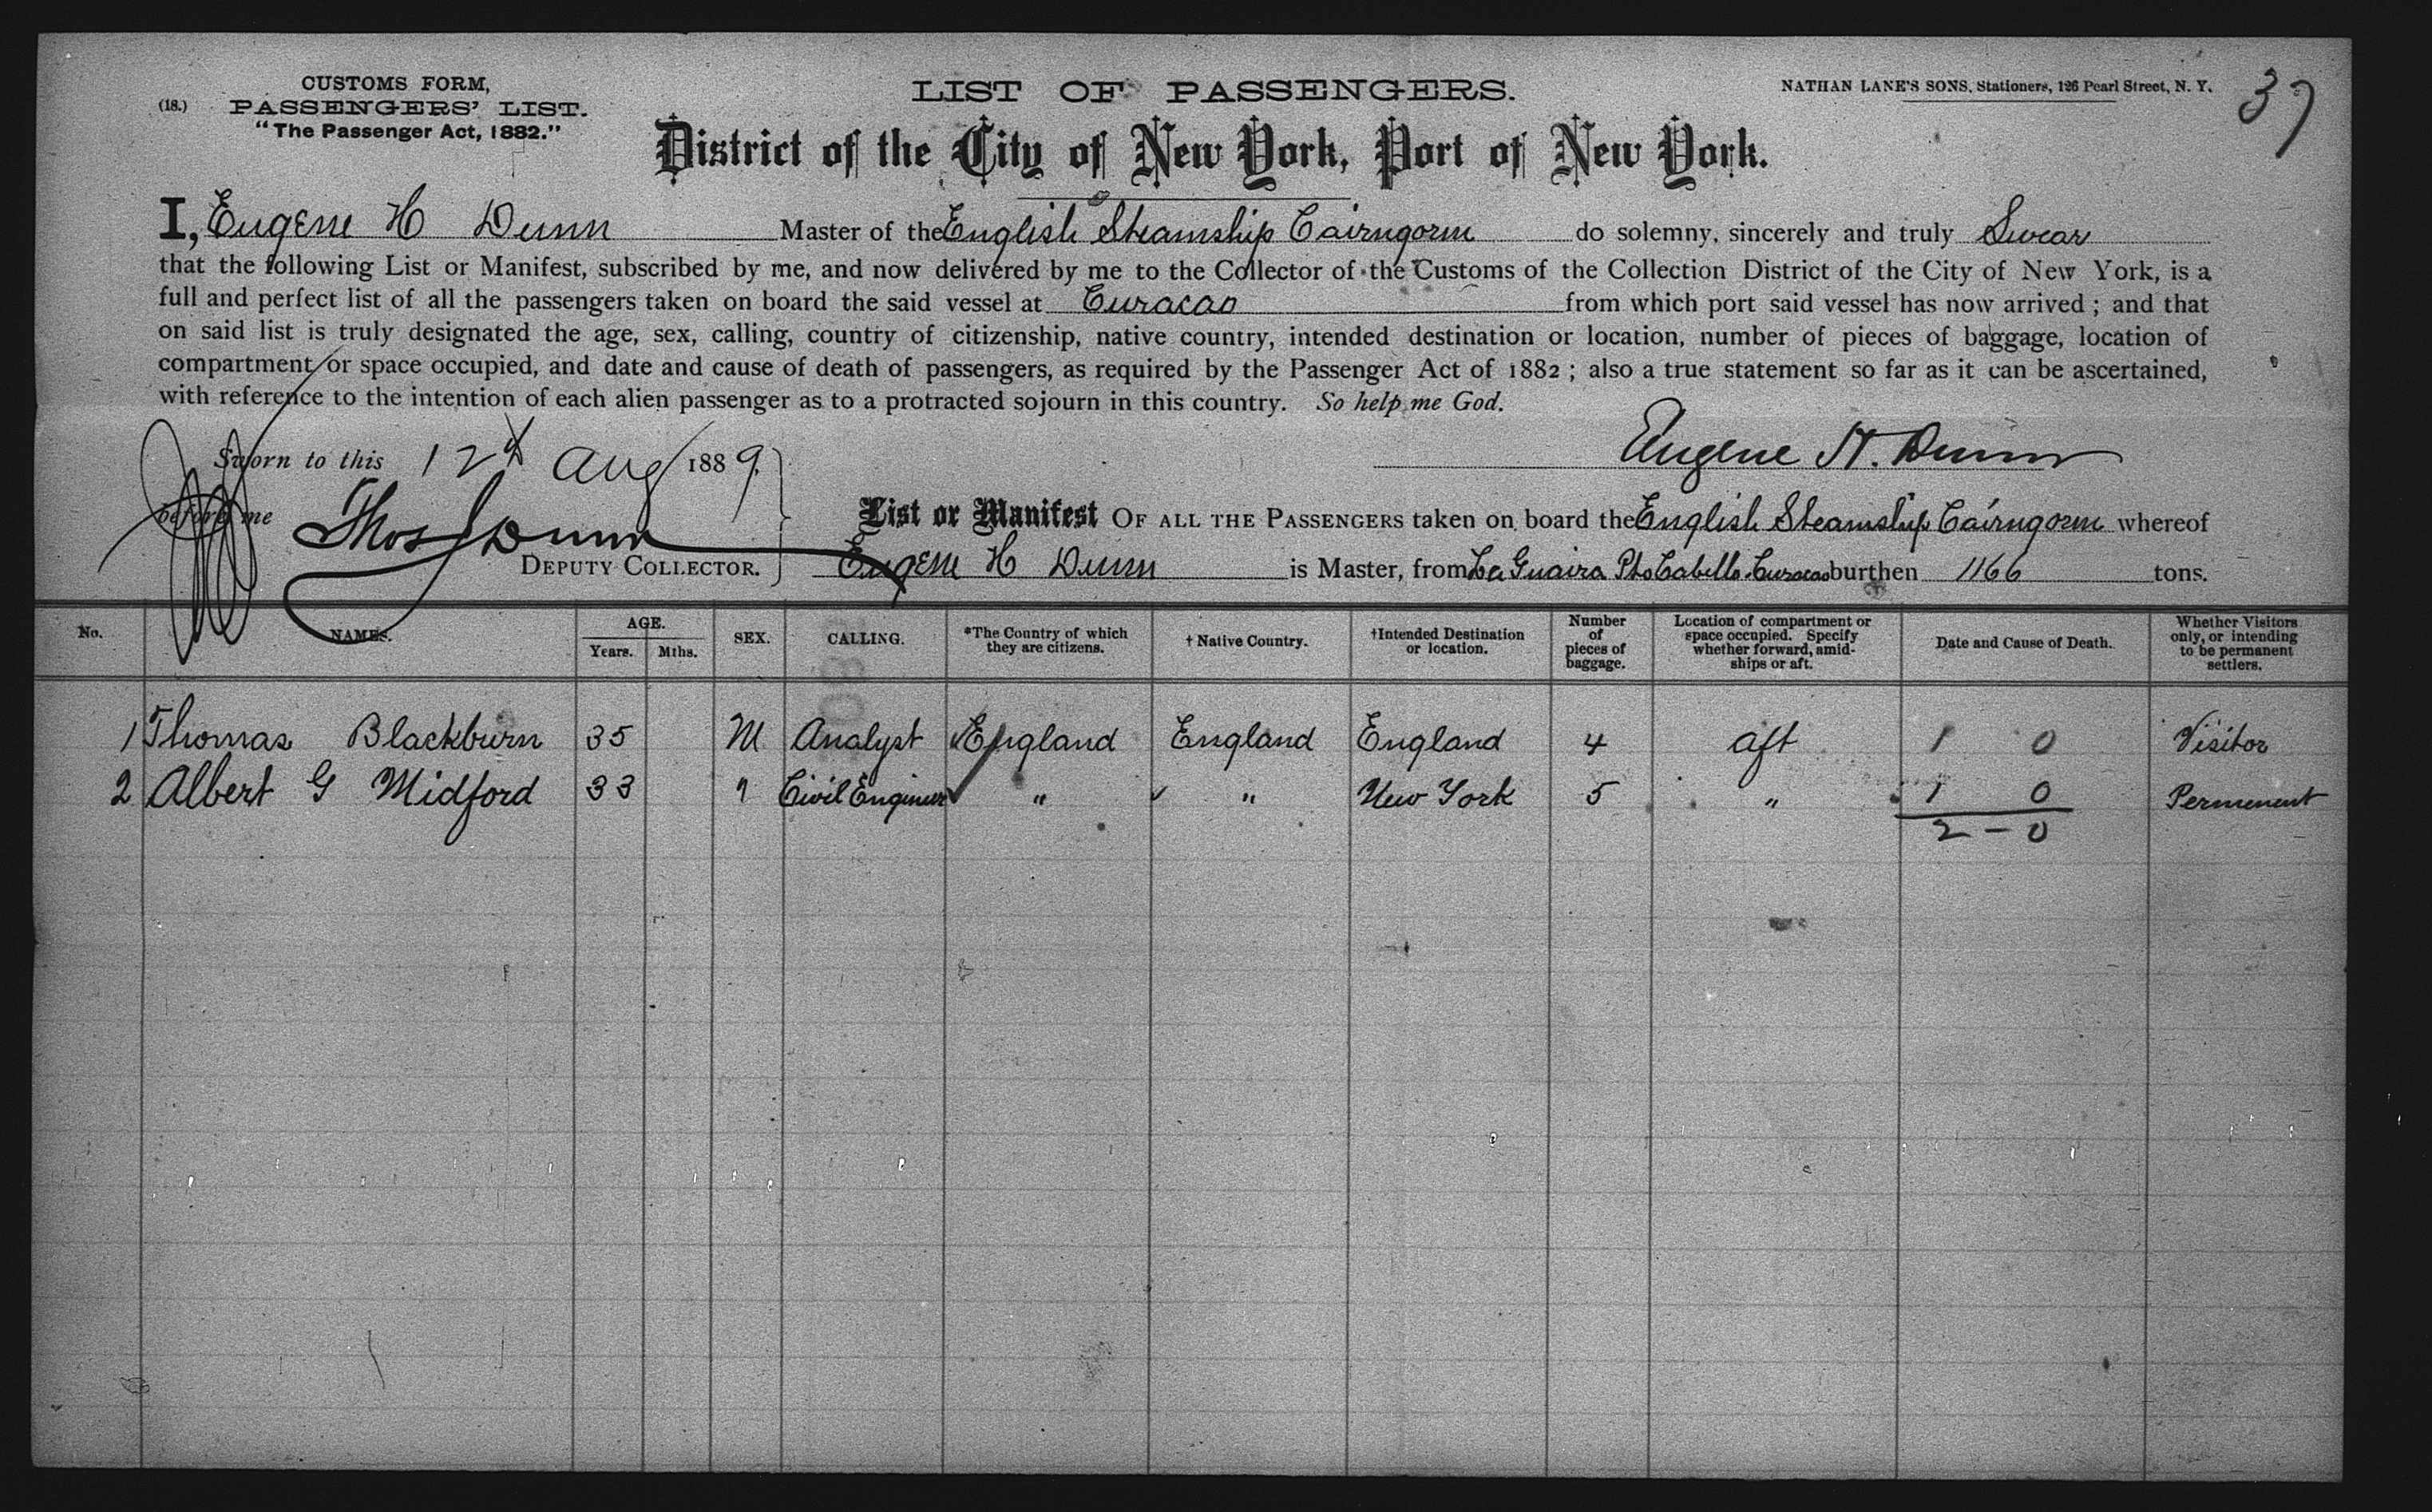 CUSTOMS FORM,
(18.) PASSENGERS' LIST.
"The Passenger Act, 1882."
LIST OF PASSENGERS.
NATHAN LANE'S SONS, Stationers, 126 Pearl Street, N. Y.
37
District of the City of New York, Port of New York.
I, Eugene H Dunn Master of the English Steamship Cairngorm do solemny, sincerely and truly Swear
that the following List or Manifest, subscribed by me, and now delivered by me to the Collector of the Customs of the Collection District of the City of New York, is a
full and perfect list of all the passengers taken on board the said vessel at Curacao from which port said vessel has now arrived ; and that
on said list is truly designated the age, sex, calling, country of citizenship, native country, intended destination or location, number of pieces of baggage, location of
compartment or space occupied, and date and cause of death of passengers, as required by the Passenger Act of 1882 ; also a true statement so far as it can be ascertained,
with reference to the intention of each alien passenger as to a protracted sojourn in this country. So help me God.
Sworn to this 12th Aug 1889.
Eugene H. Dunn
before me Thos J Dunn
DEPUTY COLLECTOR.
List or Manifest OF ALL THE PASSENGERS taken on board the English Steamship Cairngorm whereof
Eugene H Dunn is Master, from La Guaira Pto Cabello Curacao burthen 1166 tons.
No. NAMES. AGE. Years. Mths. SEX. CALLING. *The Country of which they are citizens. † Native Country. †Intended Destination or location. Number of pieces of baggage. Location of compartment or space occupied. Specify whether forward, amid-ships or aft. Date and Cause of Death. Whether Visitors only, or intending to be permanent settlers.
1 Thomas Blackburn 35 M Analyst England England England 4 aft 1 0 Visitor
2 Albert G Midford 33 " Civil Engineer " " New York 5 " 1 0 Permenent
2 - 0